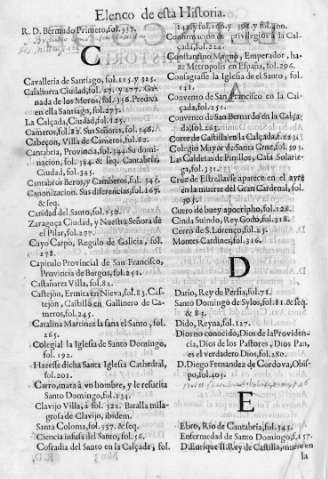 Elenco de esta Historia.
R. D. Bermudo Primero, fol. 337.
C
Cavalleria de Santiago, fol. 125. y 325.
Calahorra Ciudad, fol. 27. y 277. Ga-
nada de los Moros, fol. 356. Predica
en ella Santiago, fol. 277.
La Calçada, Ciudad, fol. 125.
Cameros, fol. 82. Sus Señores, fol. 346.
Cabeçon, Villa de Cameros, fol. 82.
Cantabria, Provincia, fol. 344. Su domi-
nacion, fol. 384. & seq. Cantabria,
Ciudad, fol. 385.
Cantabros Beros, y Cambisos, fol. 346.
Canonizacion. Sus diferencias, fol. 267.
& seq.
Caridad del Santo, fol. 152.
Zaragoça Ciudad, y Nuestra Señora de
el Pilar, fol. 277.
Cayo Carpo, Regulo de Galicia, fol.
278.
Capitulo Provincial de San Francisco,
Provincia de Burgos, fol. 251.
Castañares Villa, fol. 82.
Castejon, Ermita en Nieva, fol. 83. Cas-
tejon, Castillo en Gallinero de Ca-
meros, fol. 245.
Catalina Martinez la sana el Santo, fol.
265.
Colegial la Iglesia de Santo Domingo,
fol. 192.
Hazese dicha Santa Iglesia Cathedral,
fol. 202.
Carro, mata à vn hombre, y le resucita
Santo Domingo, fol. 234.
Clavijo Villa, à fol. 321. Batalla mila-
grosa de Clavijo, ibidem.
Santa Coloma, fol. 357. & seq.
Ciencia infusa del Santo, fol. 56.
Cofradia del Santo en la Calçada, fol.
Confirmacion de privilegios la Cal-
çada, fol. 224.
Constantino Magno, Emperador, ha-
ze Metropolis en España, fol. 296.
Consagrasse la Iglesia de el Santo, fol.
131.
Convento de San Francisco en la Cal-
çada, fol. 251.
Convento de San Bernardo en la Calça-
da, fol. 263.
Colegio Mayor de Santa Cruz, fol. 303.
Las Caldetas de Pinillos, Casa Solarie-
ga, fol. 331.
en la muerte del Gran Cardenal, fol.
303.
Cuero de buey apocripho, fol. 128.
Cinda Suindo, Rey Godo, fol. 318.
Cerro de S. Lorenço, fol. 25.
Montes Cardines, fol. 316.
D
Dario, Rey de Persia, fol. 71.
Santo Domingo de Sylos, fol. 81. & seq.
& 83.
Dido, Reyna, fol. 127.
Dios no conocido, Dios de la Providen-
cia, Dios de los Pastores, Dios Pan,
es el verdadero Dios, fol. 280.
D. Diego Fernandez de Cordova, Obis-
po, fol. 405.
E
Ebro, Rio de Cantabria, fol. 343.
Enfermedad de Santo Domingo, fol. 157.
D. Enrique II. Rey de Castilla, muere en
la